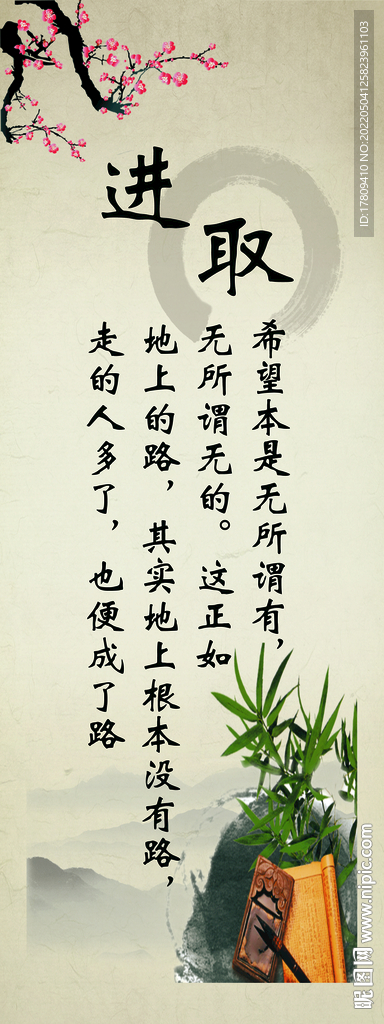 进取
希望本是无所谓有，
无所谓无的。这正如
地上的路，其实地上根本没有路，
走的人多了，也便成了路
ID:17809410 NO:20220504125823961103
昵图网 www.nipic.com